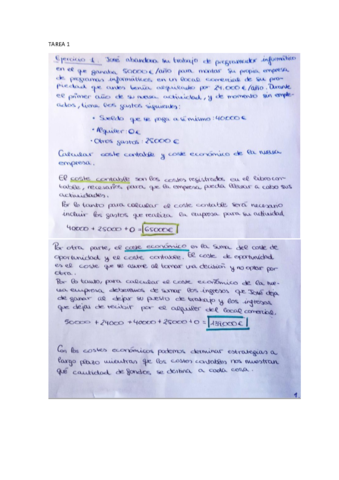 TAREA 1
Ejercicio 1. José abandona su trabajo de programador informático
en el que ganaba 50000€/año para montar su propia empresa
de programas informáticos en un local comercial de su pro-
piedad que antes tenía alquilado por 24.000€/año. Durante
el primer año de su nueva actividad, y de momento sin emple-
ados, tiene los gastos siguientes:
• Sueldo que se paga a si mismo: 40000€
• Alquiler: 0€
• Otros gastos: 25000€
Calcular coste contable y coste económico de la nueva
empresa.
El coste contable son los costes registrados en el libro con-
table, necesarios para que la empresa pueda llevar a cabo sus
actividades.
Por lo tanto para calcular el coste contable será necesario
incluir los gastos que realiza la empresa para su actividad
40000 + 25000 + 0 = 65000€
Por otra parte, el coste económico es la suma del coste de
oportunidad y el coste contable. El coste de oportunidad
es el coste que se asume al tomar una decisión y no optar por
otra.
Por lo tanto, para calcular el coste económico de la nue-
va empresa debemos de sumar los ingresos que José deja
de ganar al dejar su puesto de trabajo y los ingresos
que deja de recibir por el alquiler del local comercial.
50000 + 24000 + 40000 + 25000 + 0 = 139000€
Con los costes económicos podemos determinar estrategias a
largo plazo mientras que los costes contables nos muestran
qué cantidad de fondos se destina a cada cosa.
1